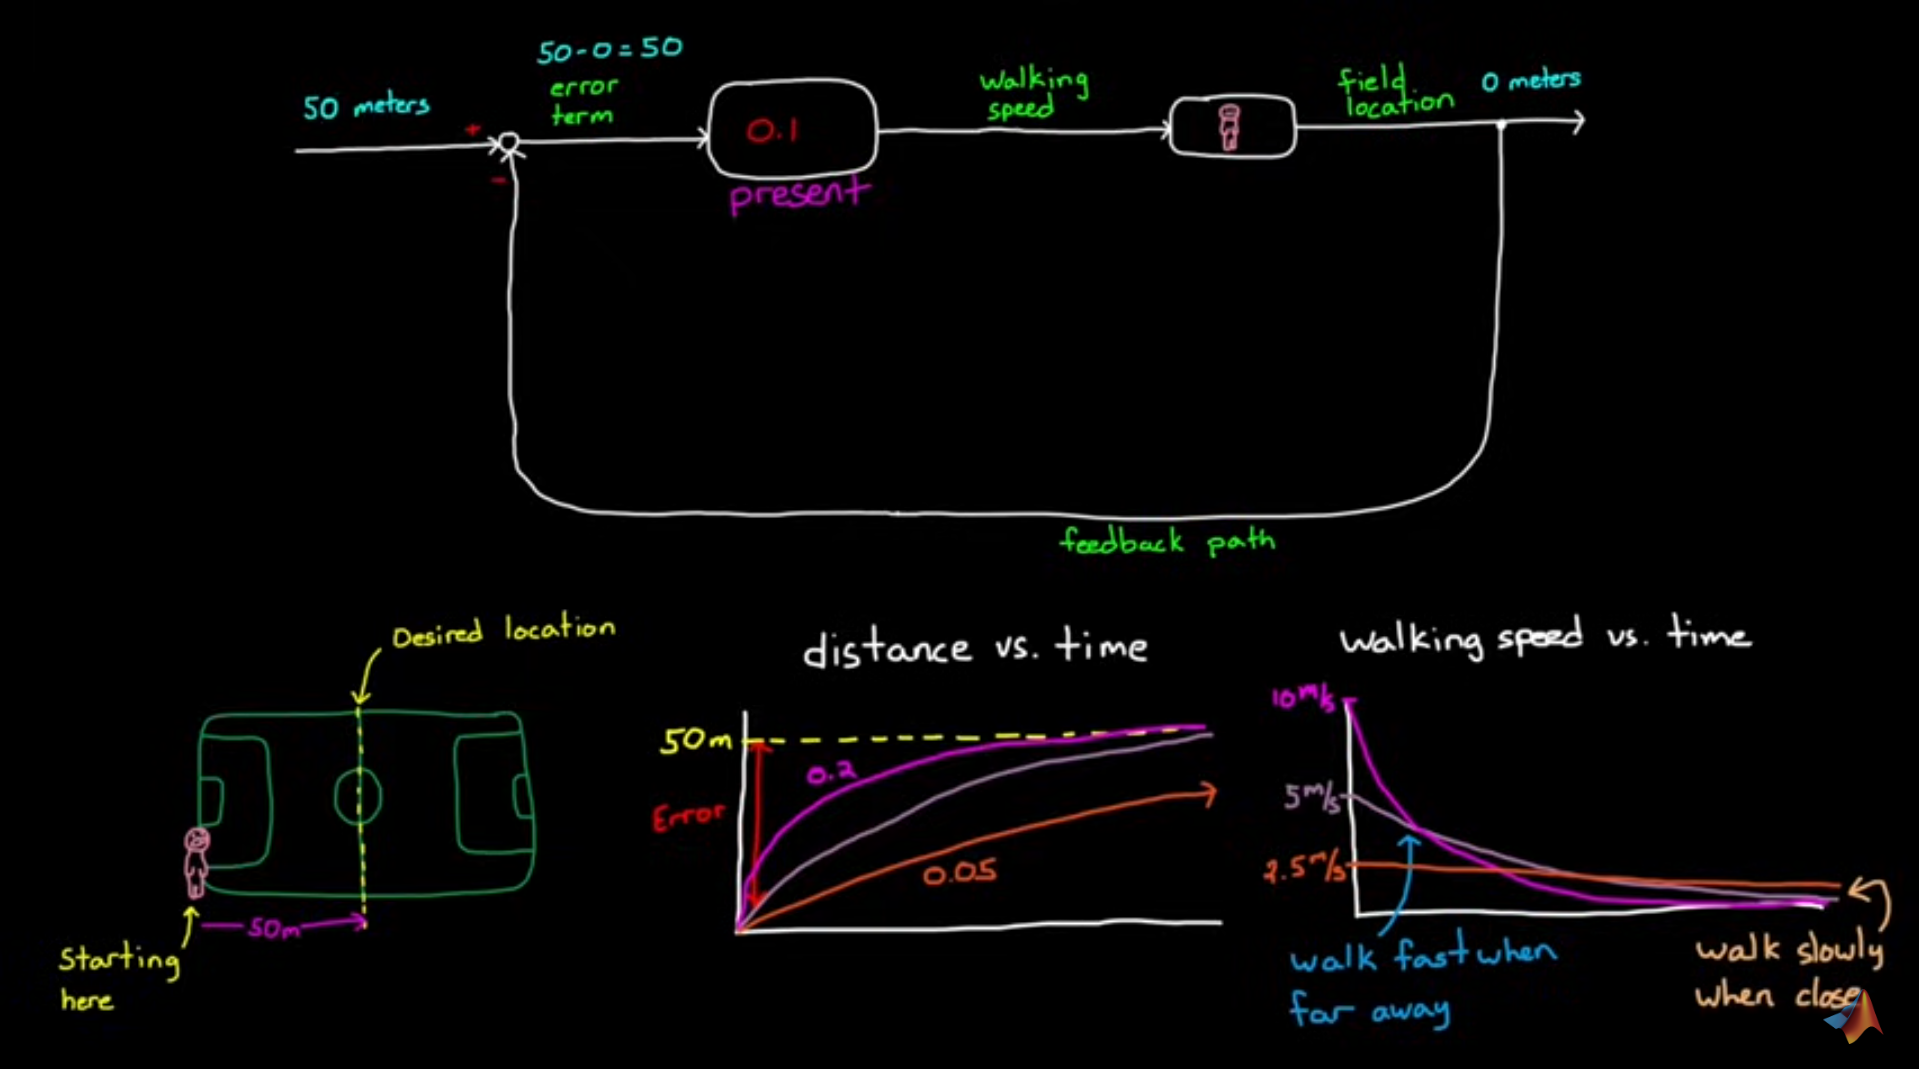 50-0=50
error
term
50 meters
+
-
0.1
present
walking
speed
field
location
0 meters
feedback path
Desired location
50m
Starting
here
distance vs. time
50m
Error
0.2
0.05
walking speed vs. time
10m/s
5m/s
2.5m/s
walk fast when
far away
walk slowly
when close